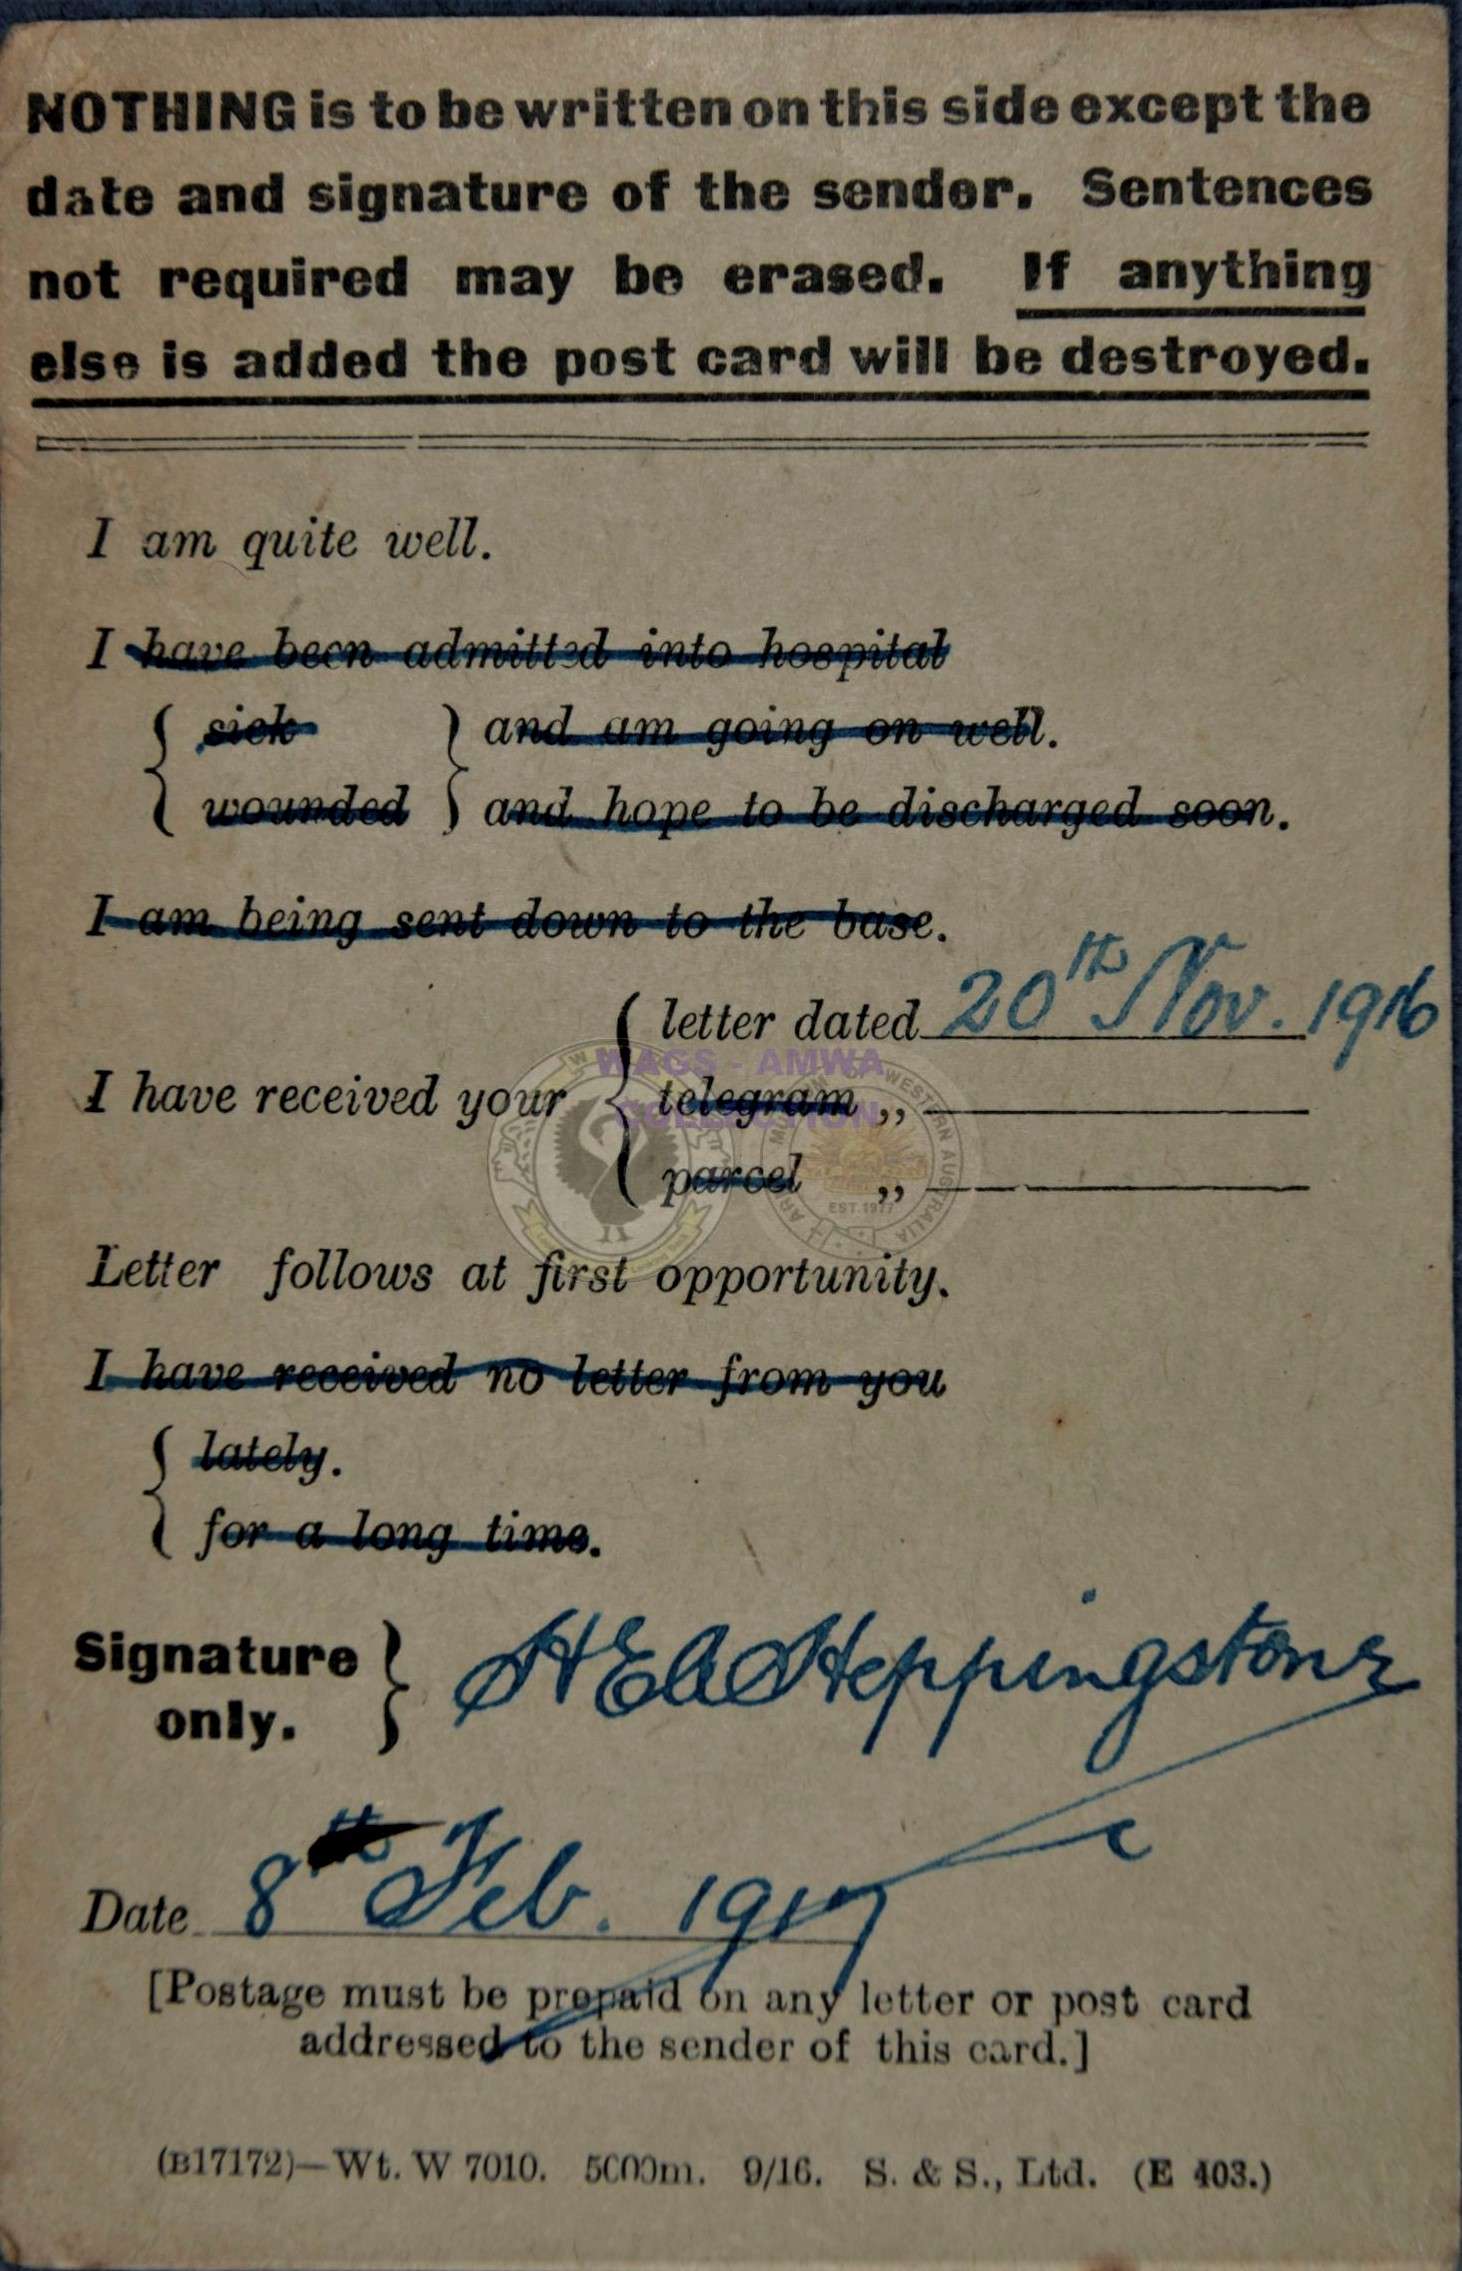 NOTHING is to be written on this side except the
date and signature of the sender. Sentences
not required may be erased. If anything
else is added the post card will be destroyed.
I am quite well.
I have been admitted into hospital
{ sick } and am going on well.
{ wounded } and hope to be discharged soon.
I am being sent down to the base.
letter dated 20th Nov. 1916
WAGS - AMWA
I have received your { telegram „
COLLECTION
parcel „
EST. 1977
Letter follows at first opportunity.
I have received no letter from you
{ lately.
{ for a long time.
Signature } H E A Heppingstone
only.
Date 8th Feb. 1917
[Postage must be prepaid on any letter or post card
addressed to the sender of this card.]
(B17172)—Wt. W 7010. 5000m. 9/16. S. & S., Ltd. (E 403.)